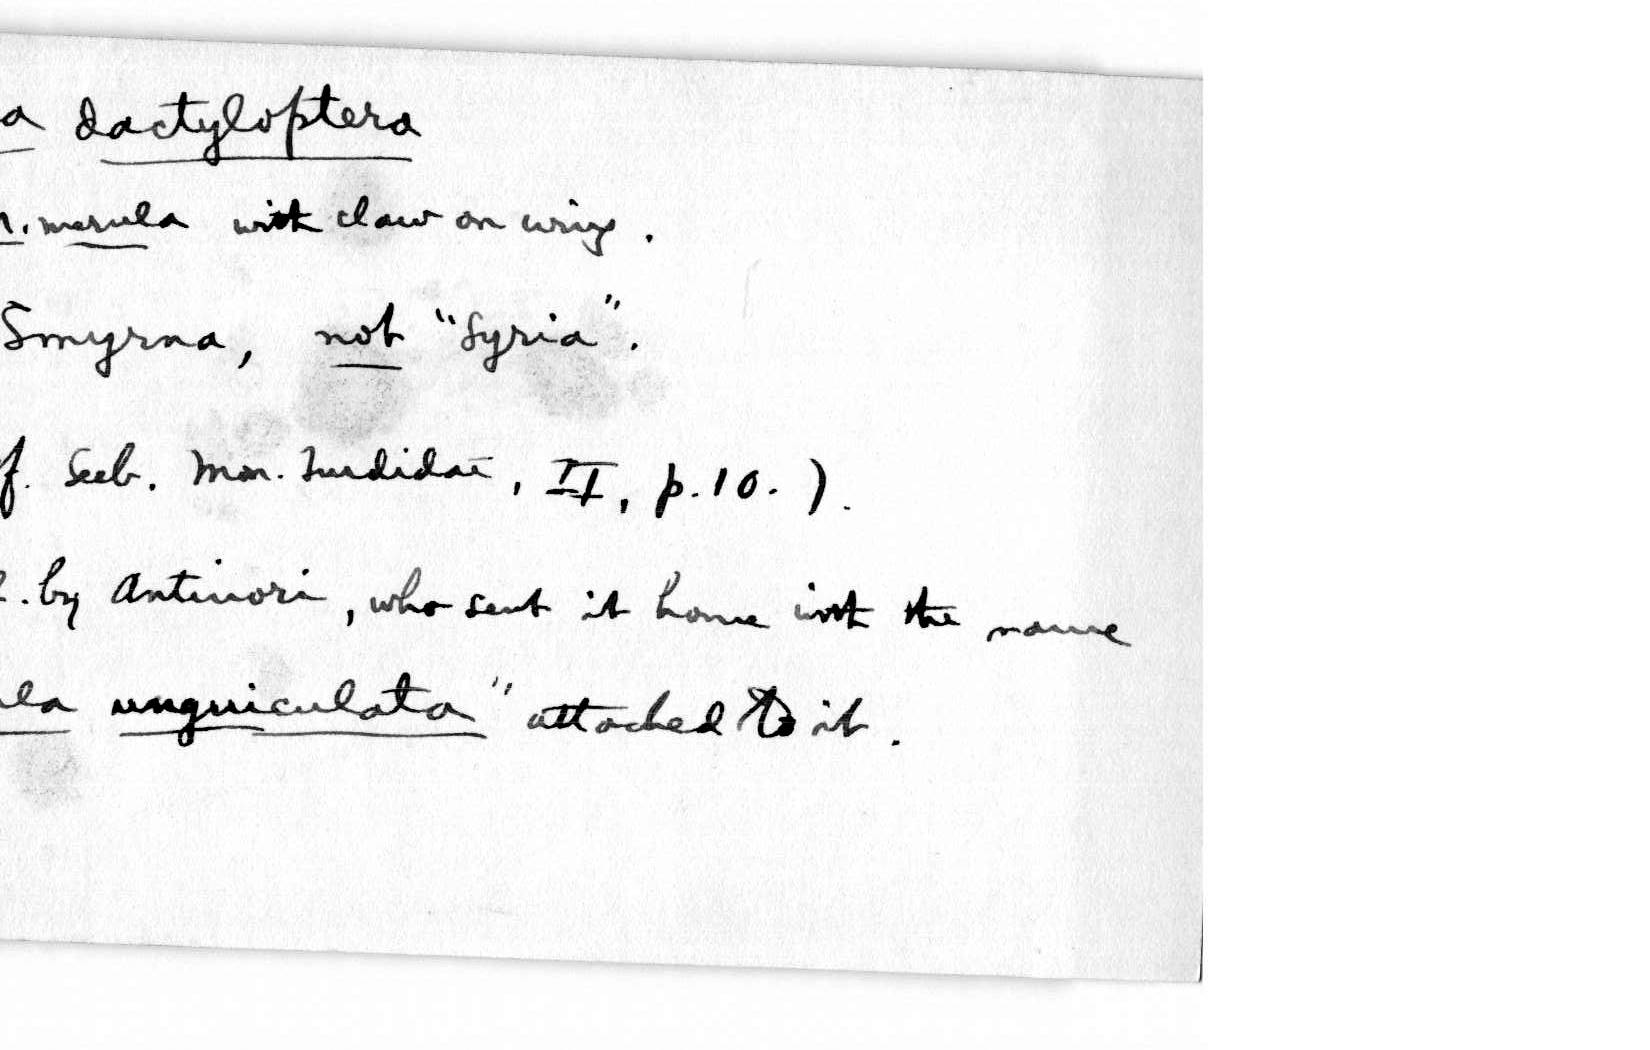 a dactyloptera
. merula with claw on wing.
Smyrna, not "Syria".
f. Seeb. Mon. Turdidae, II, p.10.).
. by Antinori, who sent it home with the name
la unguiculata" attached to it.